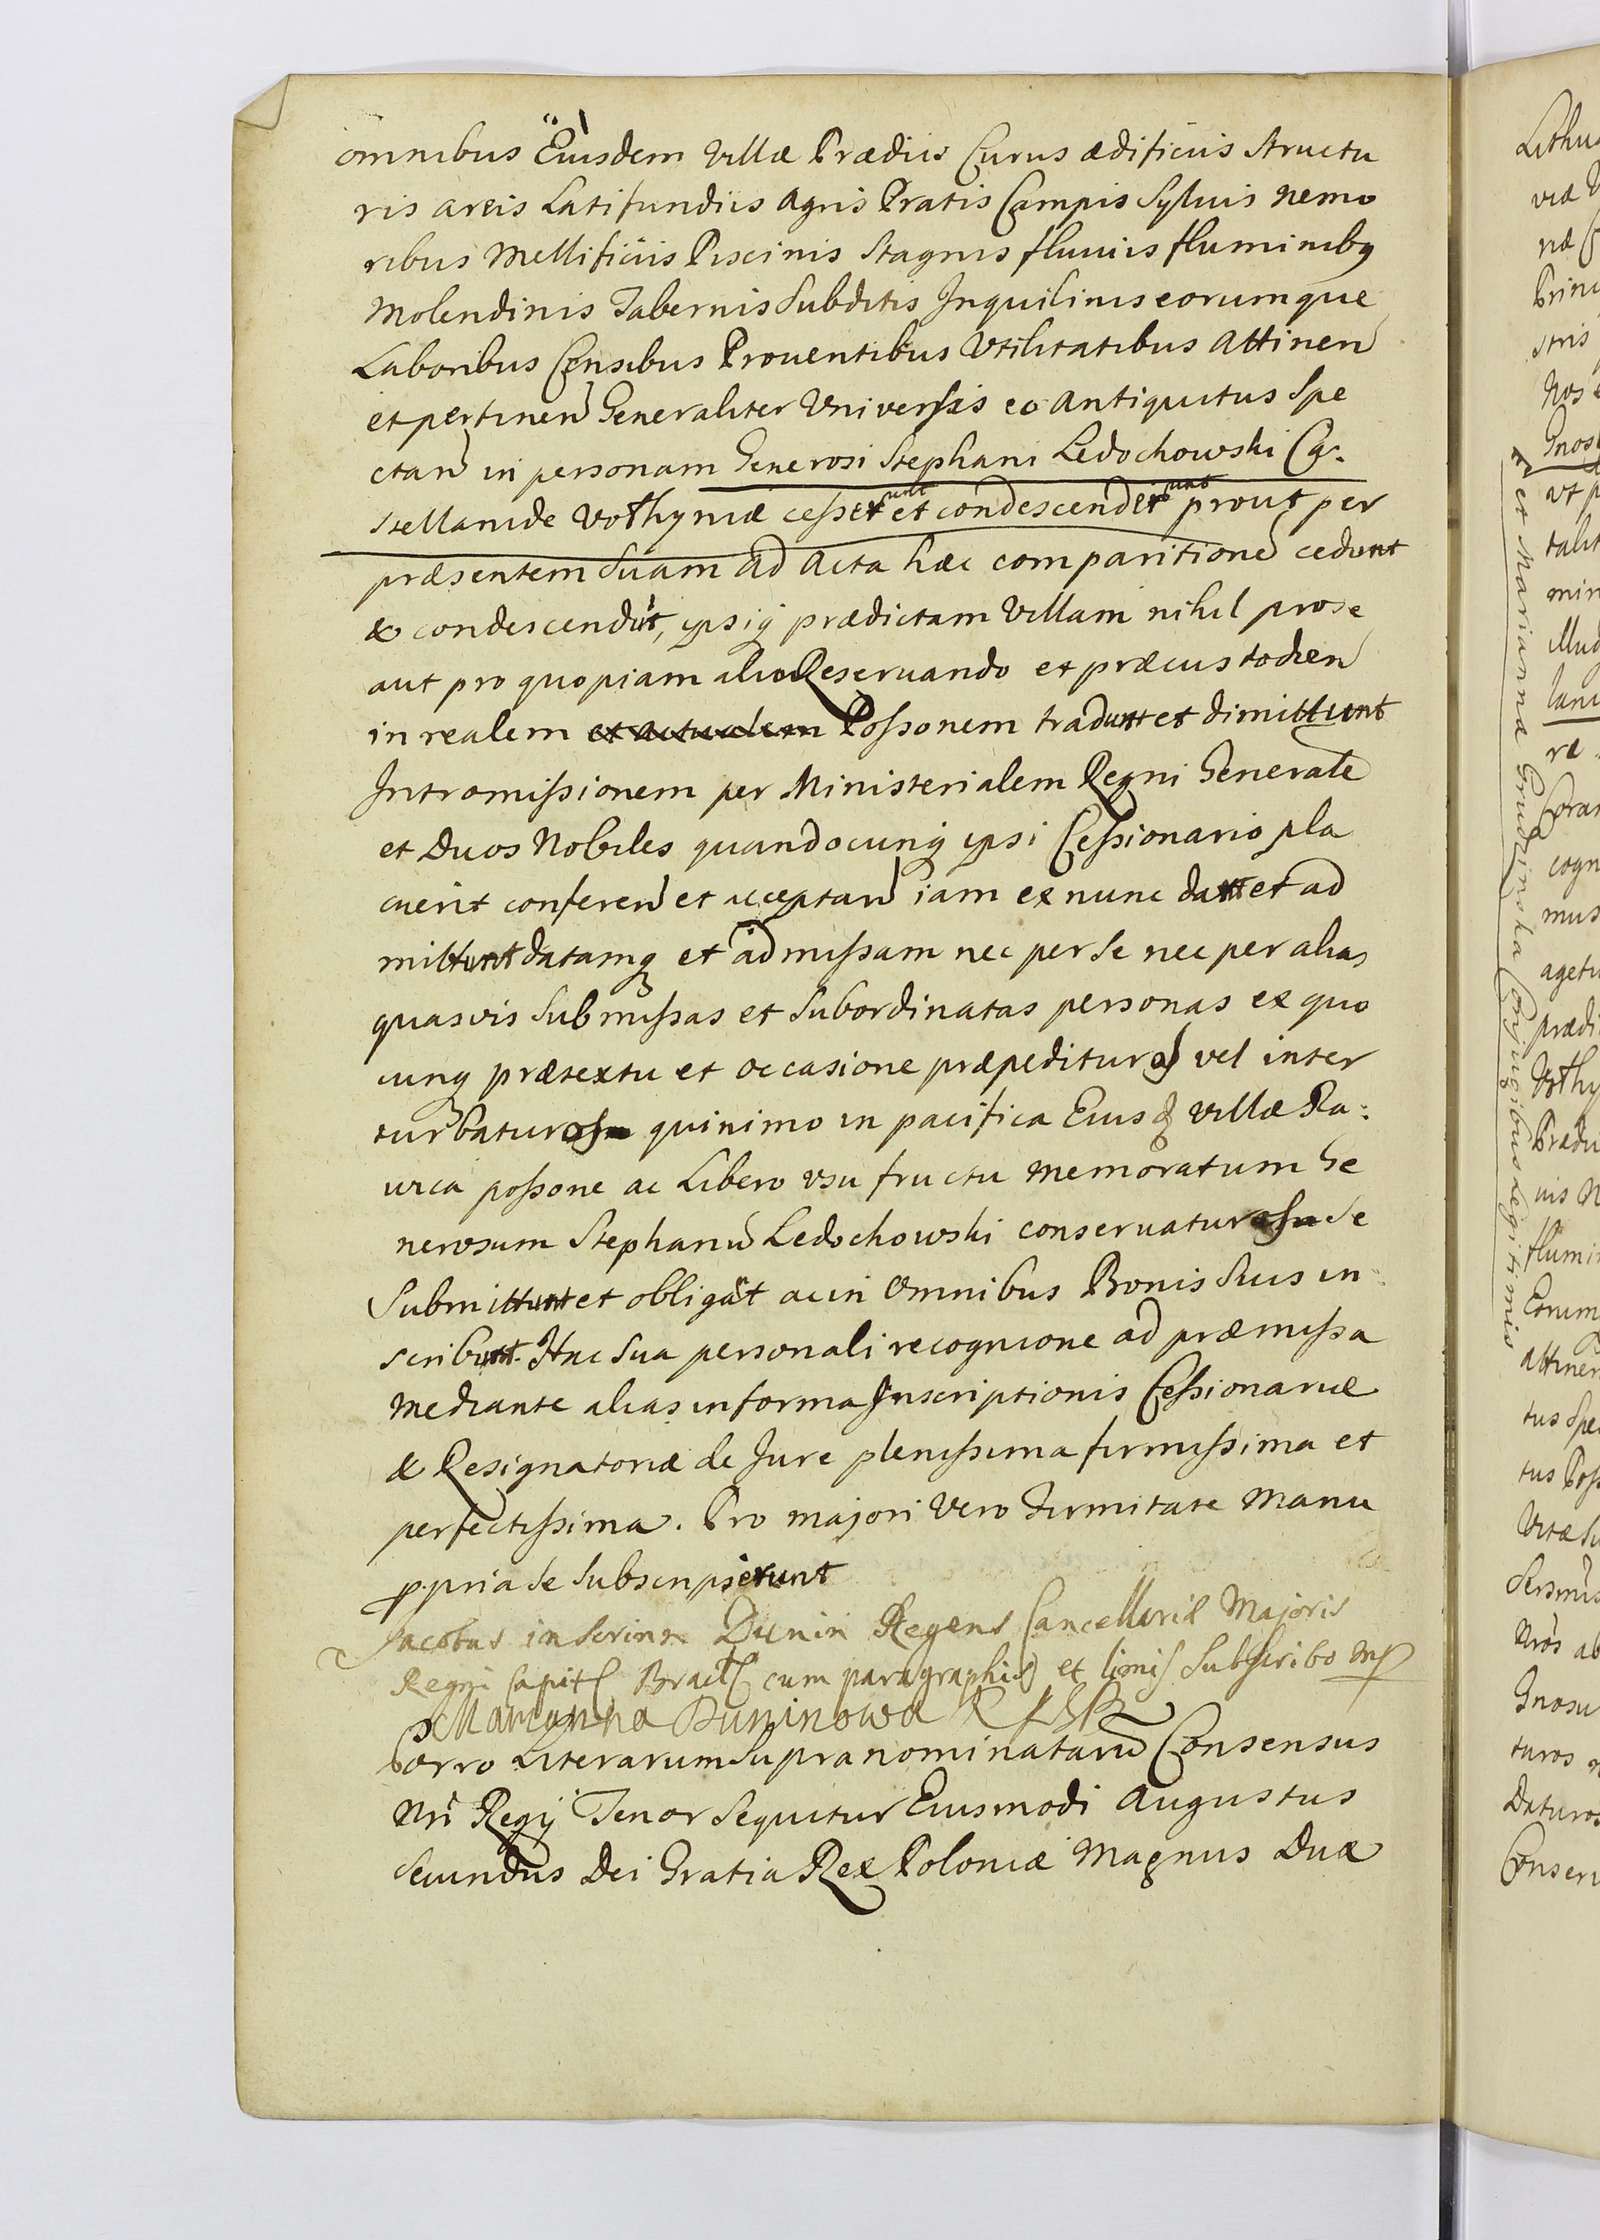 omnibus Eiusdem Villæ Prædiis Curiis ædificiis Structu
ris areis Latifundiis Agris Pratis Campis Syluis nemo
ribus Mellificiis Piscinis Stagnis fluuiis fluminibq
Molendinis Tabernis Subditis Inquilinis eorumque
Laboribus Censibus Prouentibus Vtilitatibus Attinen
et pertinen Generaliter Vniversis eo antiquitus Spe
ctan in personam Generosi Stephani Ledochowski Ca.
stellanide Wolhyniæ cesserunt et condescenderunt prout per
præsentem Suam ad Acta hæc comparitione cedunt
& condescendut, ipsiq prædictam Villam nihil pro se
aut pro quopiam alio Reseruando et præcustodien
in realem et actualem Possonem tradunt et dimittunt
Intromissionem per Ministerialem Regni Generale
et Duos Nobiles quandocunq ipsi Cessionario pla
cuerit conferen et acceptan iam ex nunc dant et ad
mittunt datamq et admissam nec per se nec per alias
quasvis Submissas et Subordinatas personas ex quo
cunq prætextu et occasione præpedituros vel inter
turbaturos quinimo in pacifica Eiusd Villæ Ra:
uica possone ac Libero vsu fructu memoratum Ge
nerosum Stephanu Ledochowski conseruaturos Se
Submittunt et obligat ac in Omnibus Bonis Suis in
scribunt. Hac Sua personali recognicione ad præmissa
mediante alias in forma Inscriptionis Cessionariæ
& Resignatoriæ de Jure plenissima firmissima et
perfectissima. Pro majori vero Firmitate manu
ppria se Subscripserunt
Jacobus in Scrinno Dunin Regens Cancellariæ Majoris
Regni Capit Bract cum paragraphis et limis Subscribo mp
Marianna Duninowa R K
Porro Literarum Supranominataru Consensus
Nri Regij Tenor Sequitur Eiusmodi Augustus
Secundus Dei Gratia Rex Poloniæ Magnus Dux
et Marianna Grudzinska Conjugibus Legitimis